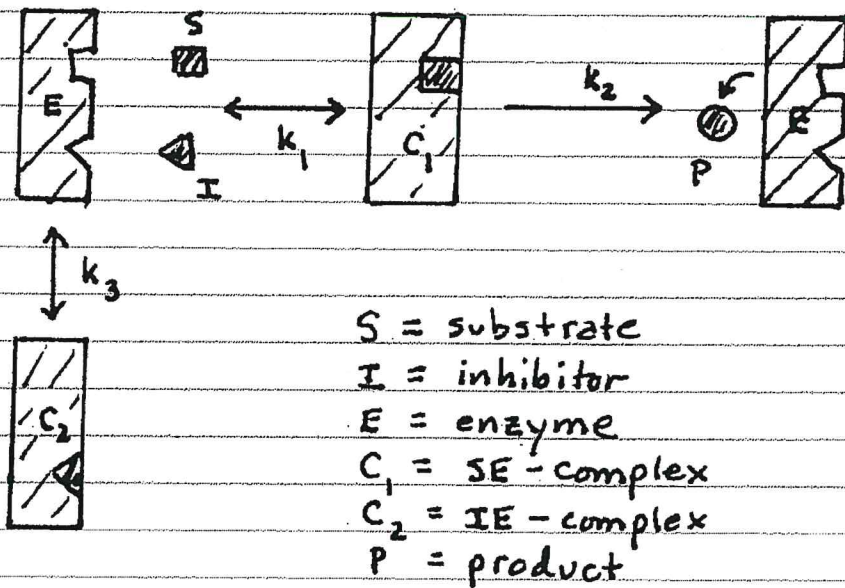 S
E
I
k₁
C₁
k₂
P
E
k₃
C₂
S = substrate
I = inhibitor
E = enzyme
C₁ = SE-complex
C₂ = IE-complex
P = product